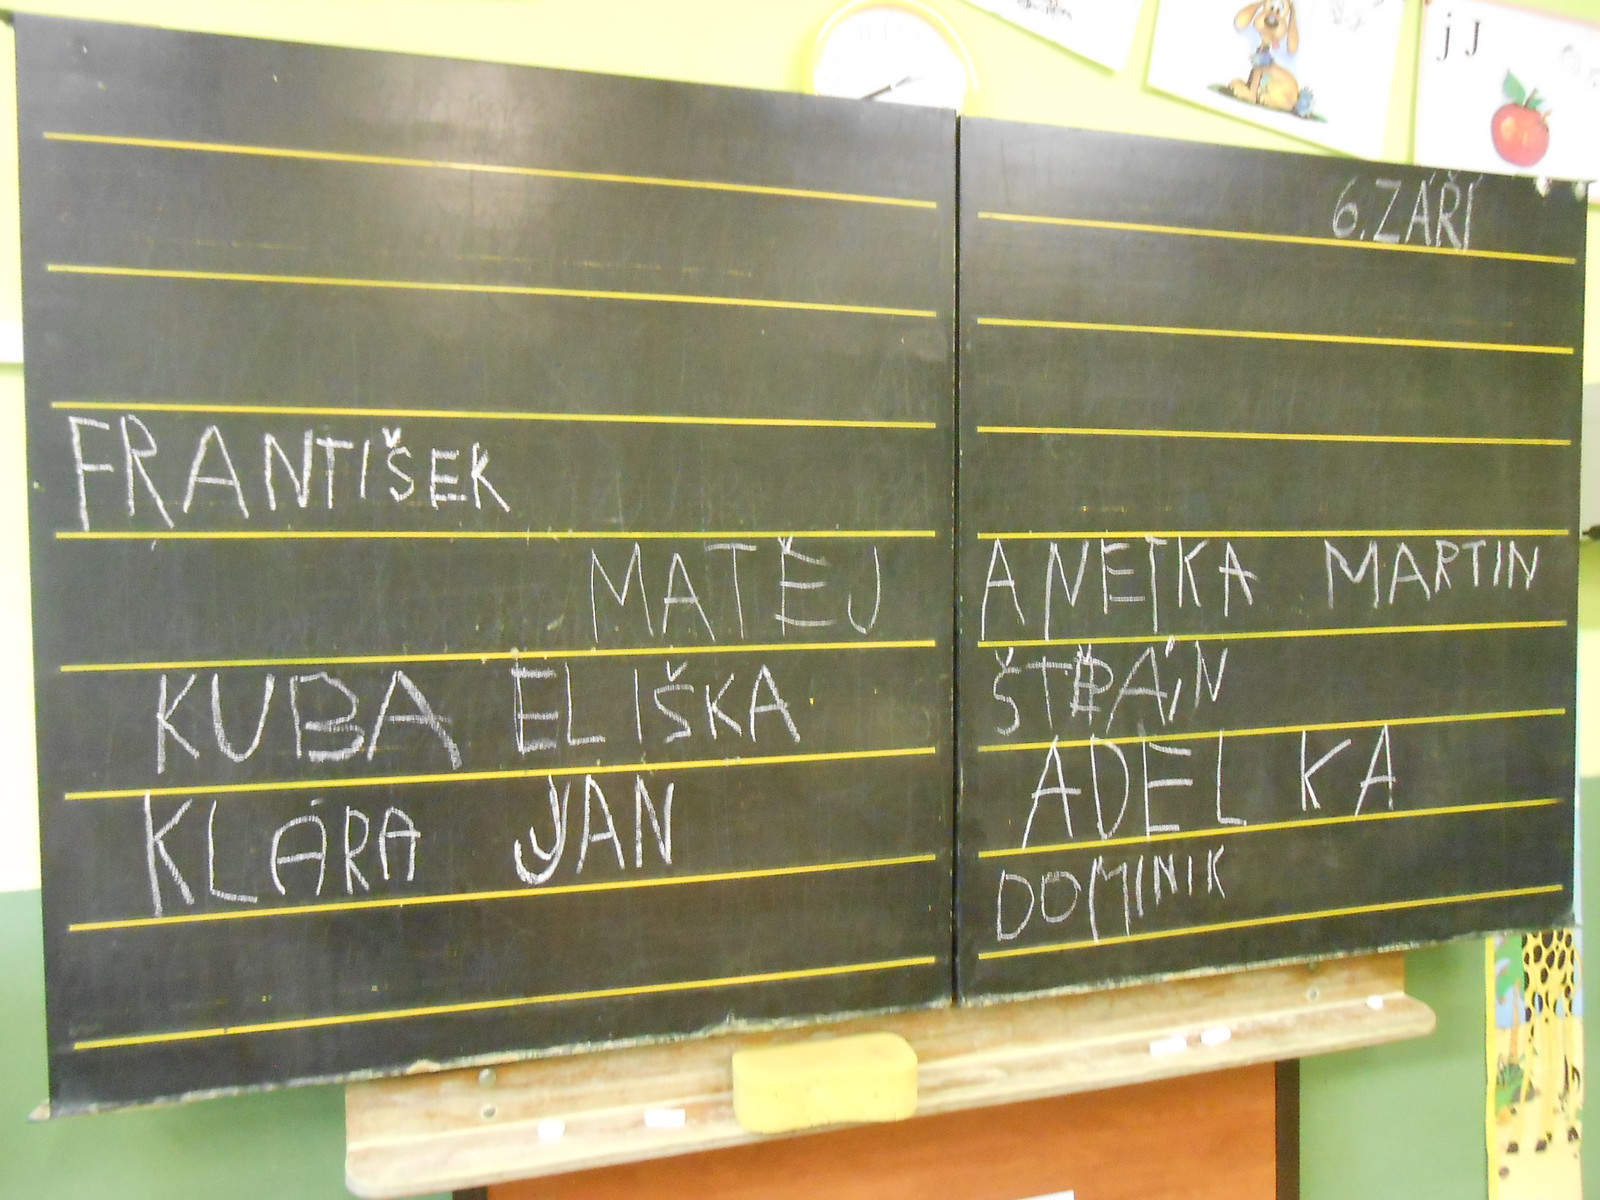 j J
6. ZÁŘÍ
FRANTIŠEK
MATĚJ
KUBA ELIŠKA
KLÁRA JAN
ANETKA MARTIN
ADELKA
DOMINIK